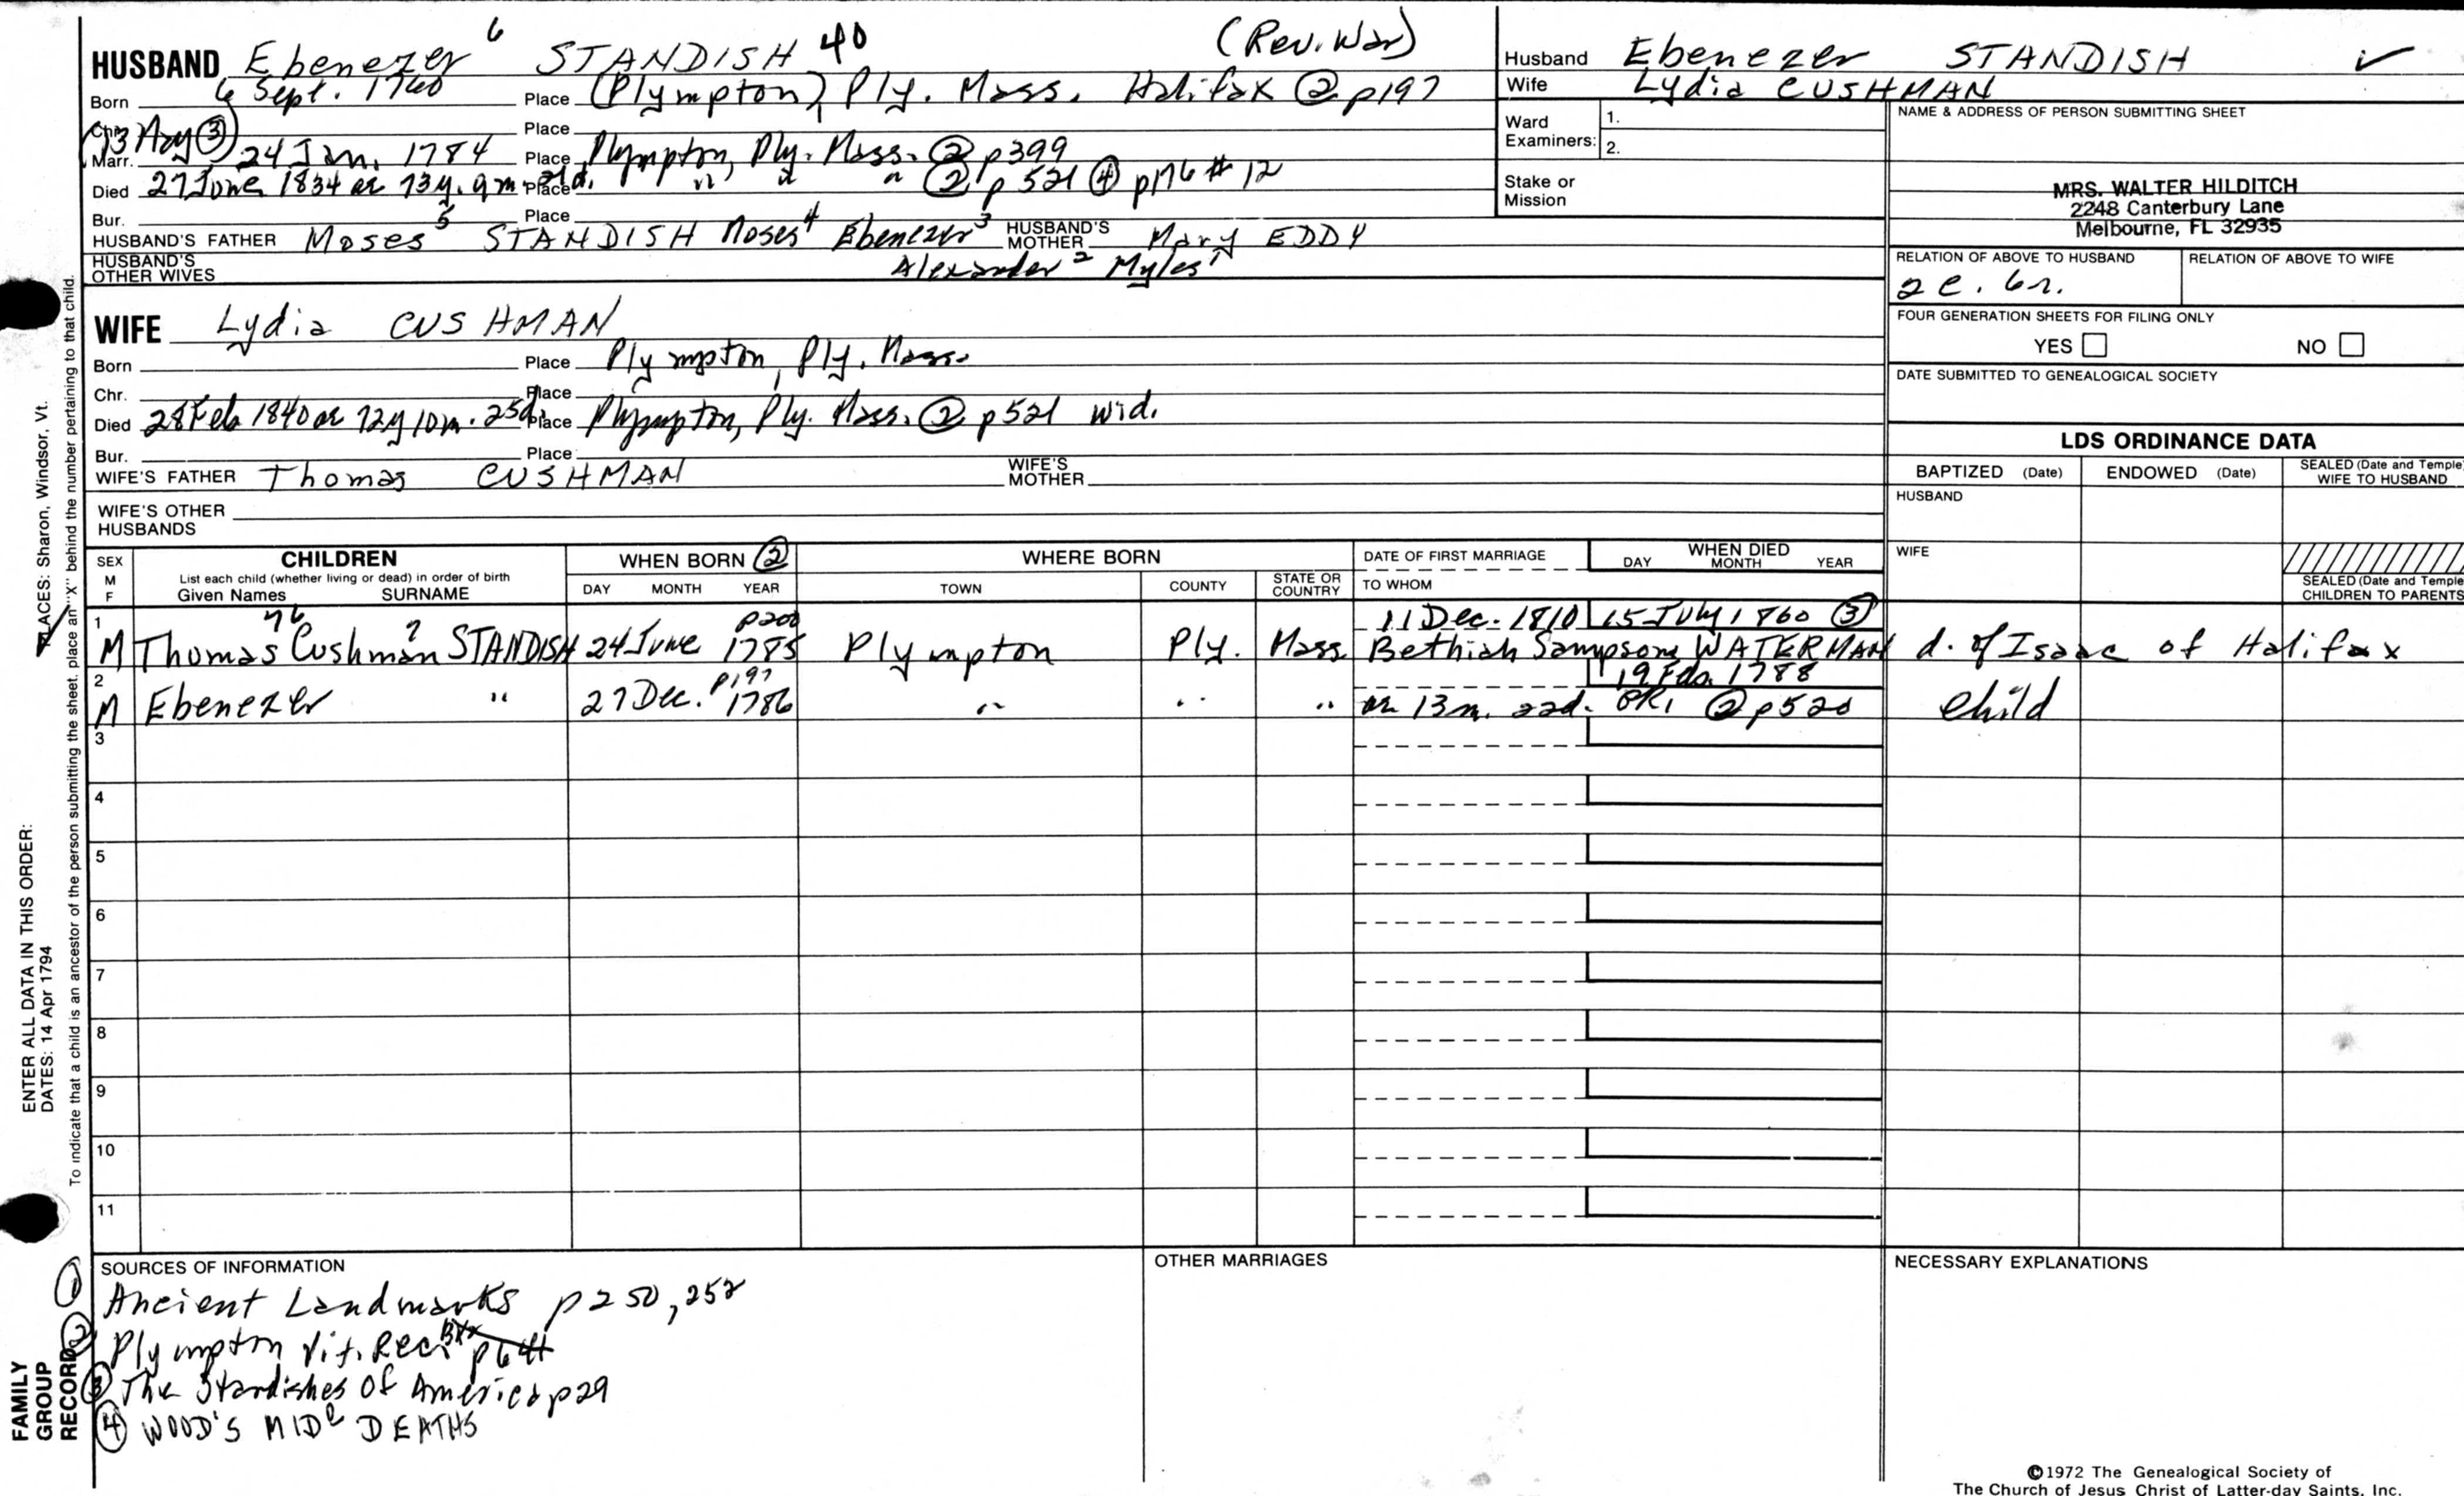 6
HUSBAND Ebenezer STANDISH 40 (Rev. War)
Born 6 Sept. 1760 Place (Plympton) Ply. Mass. Halifax ② p197
Chr. Place
(13 May ③)
Marr. 24 Jan. 1784 Place Plympton, Ply. Mass. ② p399
Died 27 June 1834 ae 73y. 9m. 21d. Place " " " ② p 521 ④ p176 # 12
Bur. Place
HUSBAND'S FATHER Moses 5 STANDISH Moses 4 Ebenezer 3 HUSBAND'S MOTHER Mary EDDY
HUSBAND'S OTHER WIVES Alexander 2 Myles 1
Husband Ebenezer STANDISH ✓
Wife Lydia CUSHMAN
Ward Examiners: 1.
2.
Stake or Mission
NAME & ADDRESS OF PERSON SUBMITTING SHEET
MRS. WALTER HILDITCH
2248 Canterbury Lane
Melbourne, FL 32935
RELATION OF ABOVE TO HUSBAND RELATION OF ABOVE TO WIFE
FOUR GENERATION SHEETS FOR FILING ONLY
YES NO
DATE SUBMITTED TO GENEALOGICAL SOCIETY
WIFE Lydia CUSHMAN
Born Place Plympton, Ply. Mass.
Chr. Place
Died 28 Feb 1840 ae 72y 10m. 25d. Place Plympton, Ply. Mass. ② p521 wid.
Bur. Place
WIFE'S FATHER Thomas CUSHMAN WIFE'S MOTHER
WIFE'S OTHER HUSBANDS
LDS ORDINANCE DATA
BAPTIZED (Date) ENDOWED (Date) SEALED (Date and Temple) WIFE TO HUSBAND
HUSBAND
WIFE
SEALED (Date and Temple) CHILDREN TO PARENTS
SEX M F
CHILDREN
List each child (whether living or dead) in order of birth
Given Names SURNAME
WHEN BORN ②
DAY MONTH YEAR
WHERE BORN
TOWN COUNTY STATE OR COUNTRY
DATE OF FIRST MARRIAGE
TO WHOM
WHEN DIED
DAY MONTH YEAR
1 76 7 p200 11 Dec. 1810 15 July 1860 ③
M Thomas Cushman STANDISH 24 June 1785 Plympton Ply. Mass. Bethiah Sampson WATERMAN d. of Isaac of Halifax
2 p197 19 Feb. 1788
M Ebenezer " 27 Dec. 1786 " " " ae 13m. 22d. ② p520 child
3
4
5
6
7
8
9
10
11
SOURCES OF INFORMATION
① Ancient Landmarks p250, 252
② Plympton Vit. Rec.
③ The Standishes of America p29
④ WOOD'S MIDe DEATHS
OTHER MARRIAGES
NECESSARY EXPLANATIONS
©1972 The Genealogical Society of
The Church of Jesus Christ of Latter-day Saints, Inc.
FAMILY GROUP RECORD
ENTER ALL DATA IN THIS ORDER:
DATES: 14 Apr 1794
PLACES: Sharon, Windsor, Vt.
To indicate that a child is an ancestor of the person submitting the sheet, place an "X" behind the number pertaining to that child.